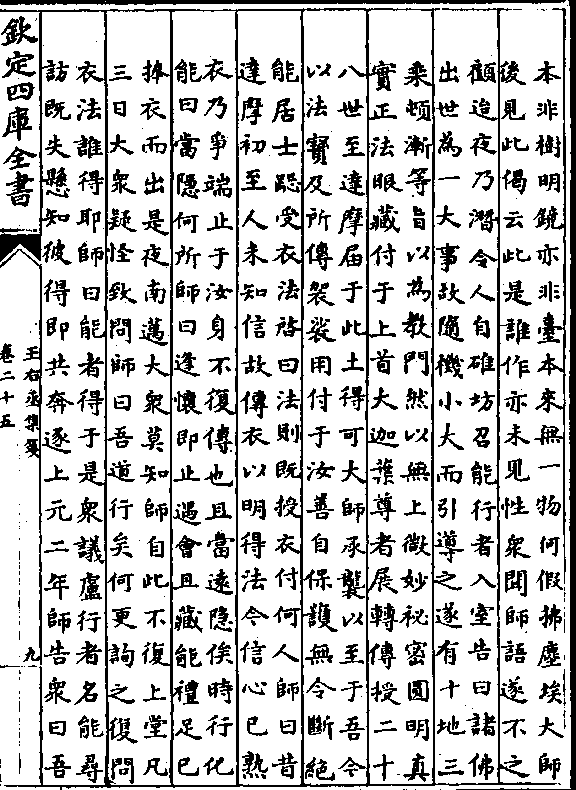 本非樹明鏡亦非臺本來無一物何假拂塵埃大師
後見此偈云此是誰作亦未見性衆聞師語遂不之
顧迨夜乃潛令人自碓坊召能行者入室告曰諸佛
出世為一大事故隨機小大而引導之遂有十地三
乘頓漸等旨以為教門然以無上微妙秘密圓明真
實正法眼藏付于上首大迦葉尊者展轉傳授二十
八世至達摩届于此土得可大師承襲以至于吾今
以法寳及所傳袈裟用付于汝善自保護無令斷絶
能居士跽受衣法啓曰法則既授衣付何人師曰昔
達摩初至人未知信故傳衣以明得法今信心已熟
衣乃爭端止于汝身不復傳也且當遠隐俟時行化
能曰當隱何所師曰逢懷即止遇會且藏能禮足已
捧衣而出是夜南邁大衆莫知師自此不復上堂凡
三日大衆疑怪致問師曰吾道行矣何更詢之復問
衣法誰得耶師曰能者得于是衆議盧行者名能尋
訪既失懸知彼得即共奔逐上元二年師告衆曰吾
欽定四庫全書
王右丞集箋
卷二十五
九